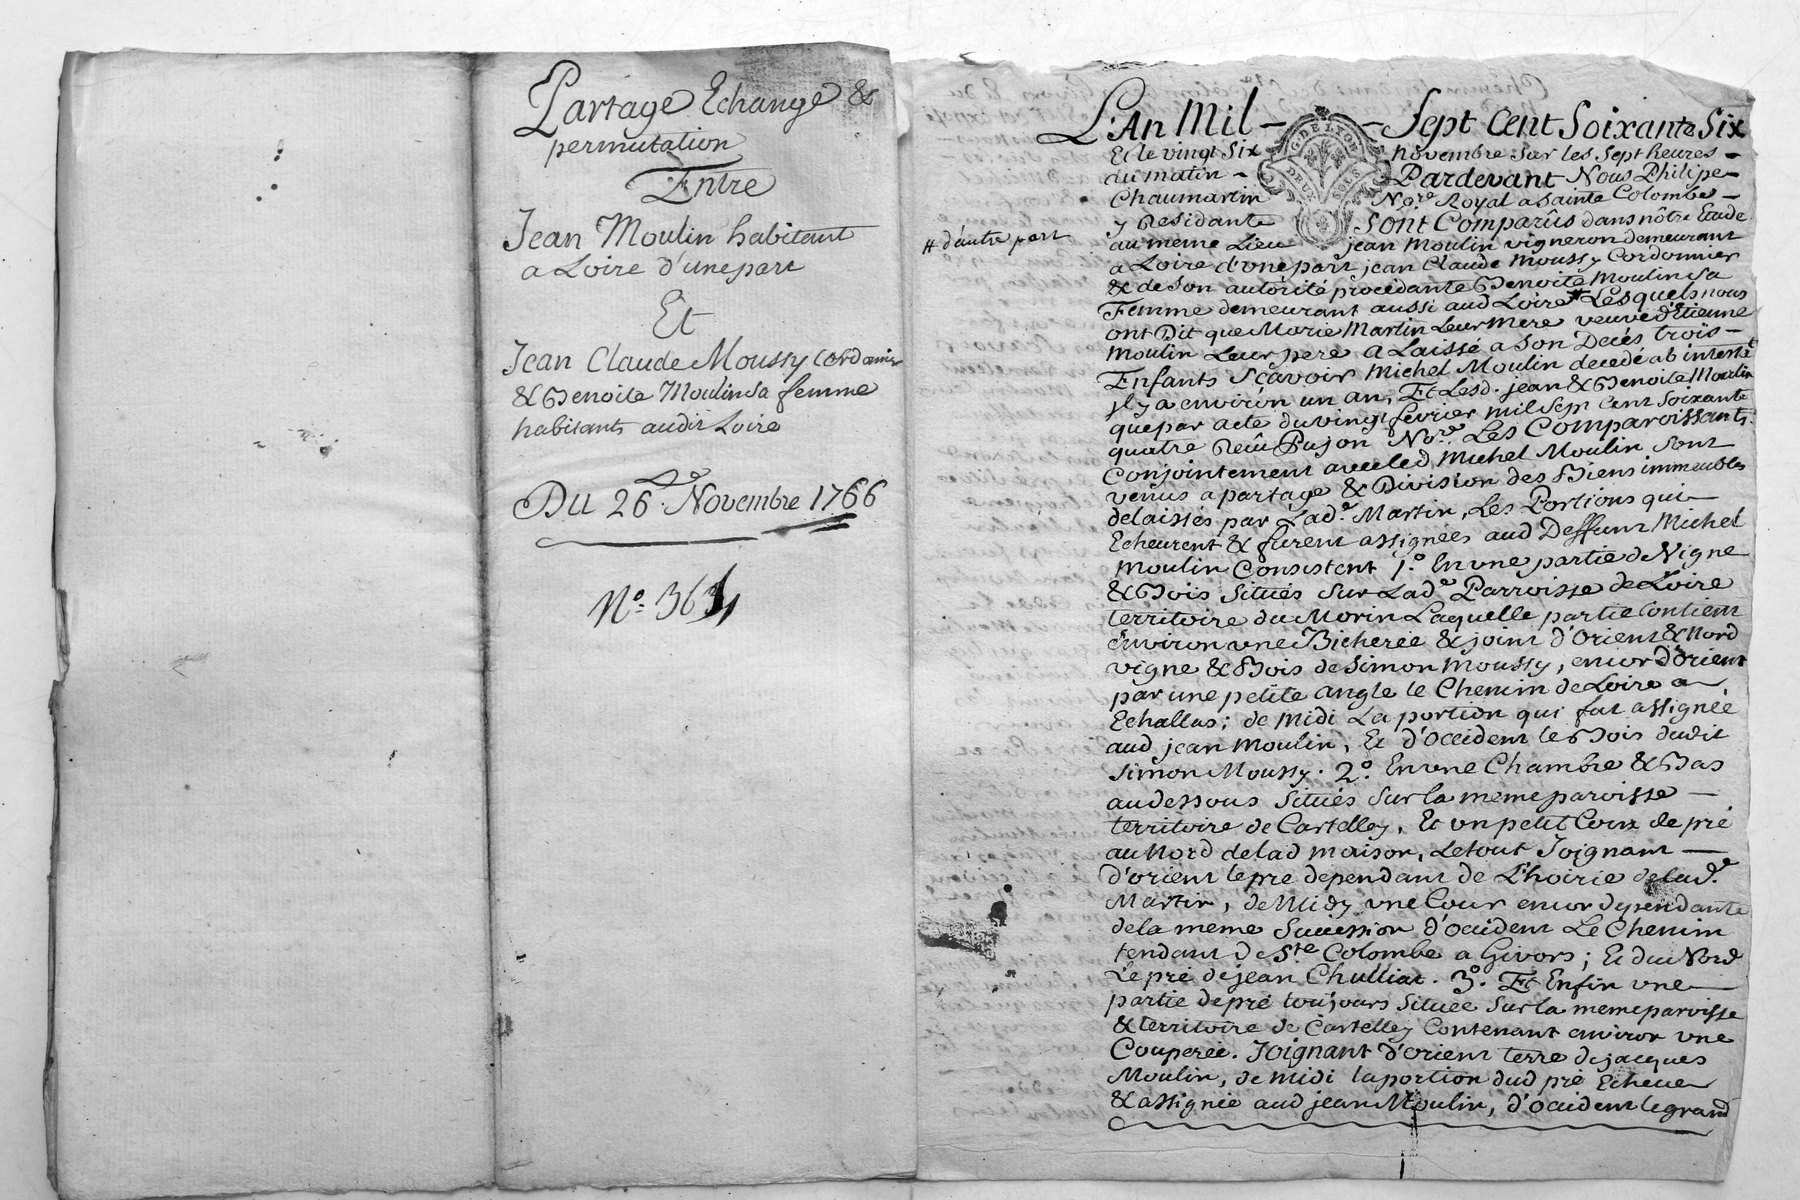 Partage Echange &
permutation
Entre
Jean Moulin habitant
a Loire d'une part
Et
Jean Claude Moussy Cordonnier
& Benoite Moulin sa femme
habitants audit Loire
Du 26e Novembre 1766
N°= 364
# d'autre part
L'An Mil - - Sept Cent Soixante Six
Et le vingt Six novembre sur les sept heures -
du matin - Pardevant Nous Philipe -
Chaumartin Nore Royal a Sainte Colombe -
y Residante Sont Comparûs dans nôtre Etude
G. DE LYON
DEUX SOLS
au meme Lieu jean Moulin vigneron demeurant
a Loire d'une part, jean Claude Moussy Cordonnier
& de son autorité procedante Benoite Moulin sa
Femme demeurant aussi aud Loire # Lesquels nous
ont Dit que Marie Martin Leur Mere veuve d'Etienne
Moulin Leur pere a Laissé a Son Decés trois -
Enfants Sçavoir Michel Moulin decedé ab intestat
jl y a environ un an, Et Lesd. jean & Benoite Moulin
que par acte du vingt fevrier mil Sept Cent Soixante
quatre Reçû Pujon Nore. Les Comparoissants
Conjointement avec led Michel Moulin sont
venus a partage & Division des Biens immeubles
delaissés par Lade. Martin, Les Portions qui -
Echeurent & furent assignées aud Deffunt Michel
Moulin Consistent 1°. En une partie de Vigne
& Bois Situés Sur Lade Parroisse de Loire
territoire du Morin Laquelle partie Contient
environ une Bicherée & joint d'orient & Nord
vigne & Bois de Simon Moussy, encor d'orient
par une petite angle le Chemin de Loire a
Echallas; de Midi La portion qui fut assignée
aud jean Moulin, Et d'Occident le Bois dudit
Simon Moussy. 2°. En une Chambre & Bas
au dessous Situés Sur la meme paroisse -
territoire de Cartelley, Et un petit Coin de pré
au Nord de lad Maison, Le tout Joignant -
d'orient le pré dependant de L'hoirie de lade.
Martin, de Midy une Cour encor dependante
de la meme Succession d'ocident Le Chemin
tendant de Ste Colombe a Givors; Et du Nord
Le pré de jean Chulliat. 3°. Et Enfin une -
partie de pré toujours Située Sur la meme paroisse
& territoire de Cartelley Contenant environ une
Couperée. Joignant d'orient terre de jacques
Moulin, de Midi la portion dud pré Echeue
& assignée aud jean Moulin, d'ocident le grand